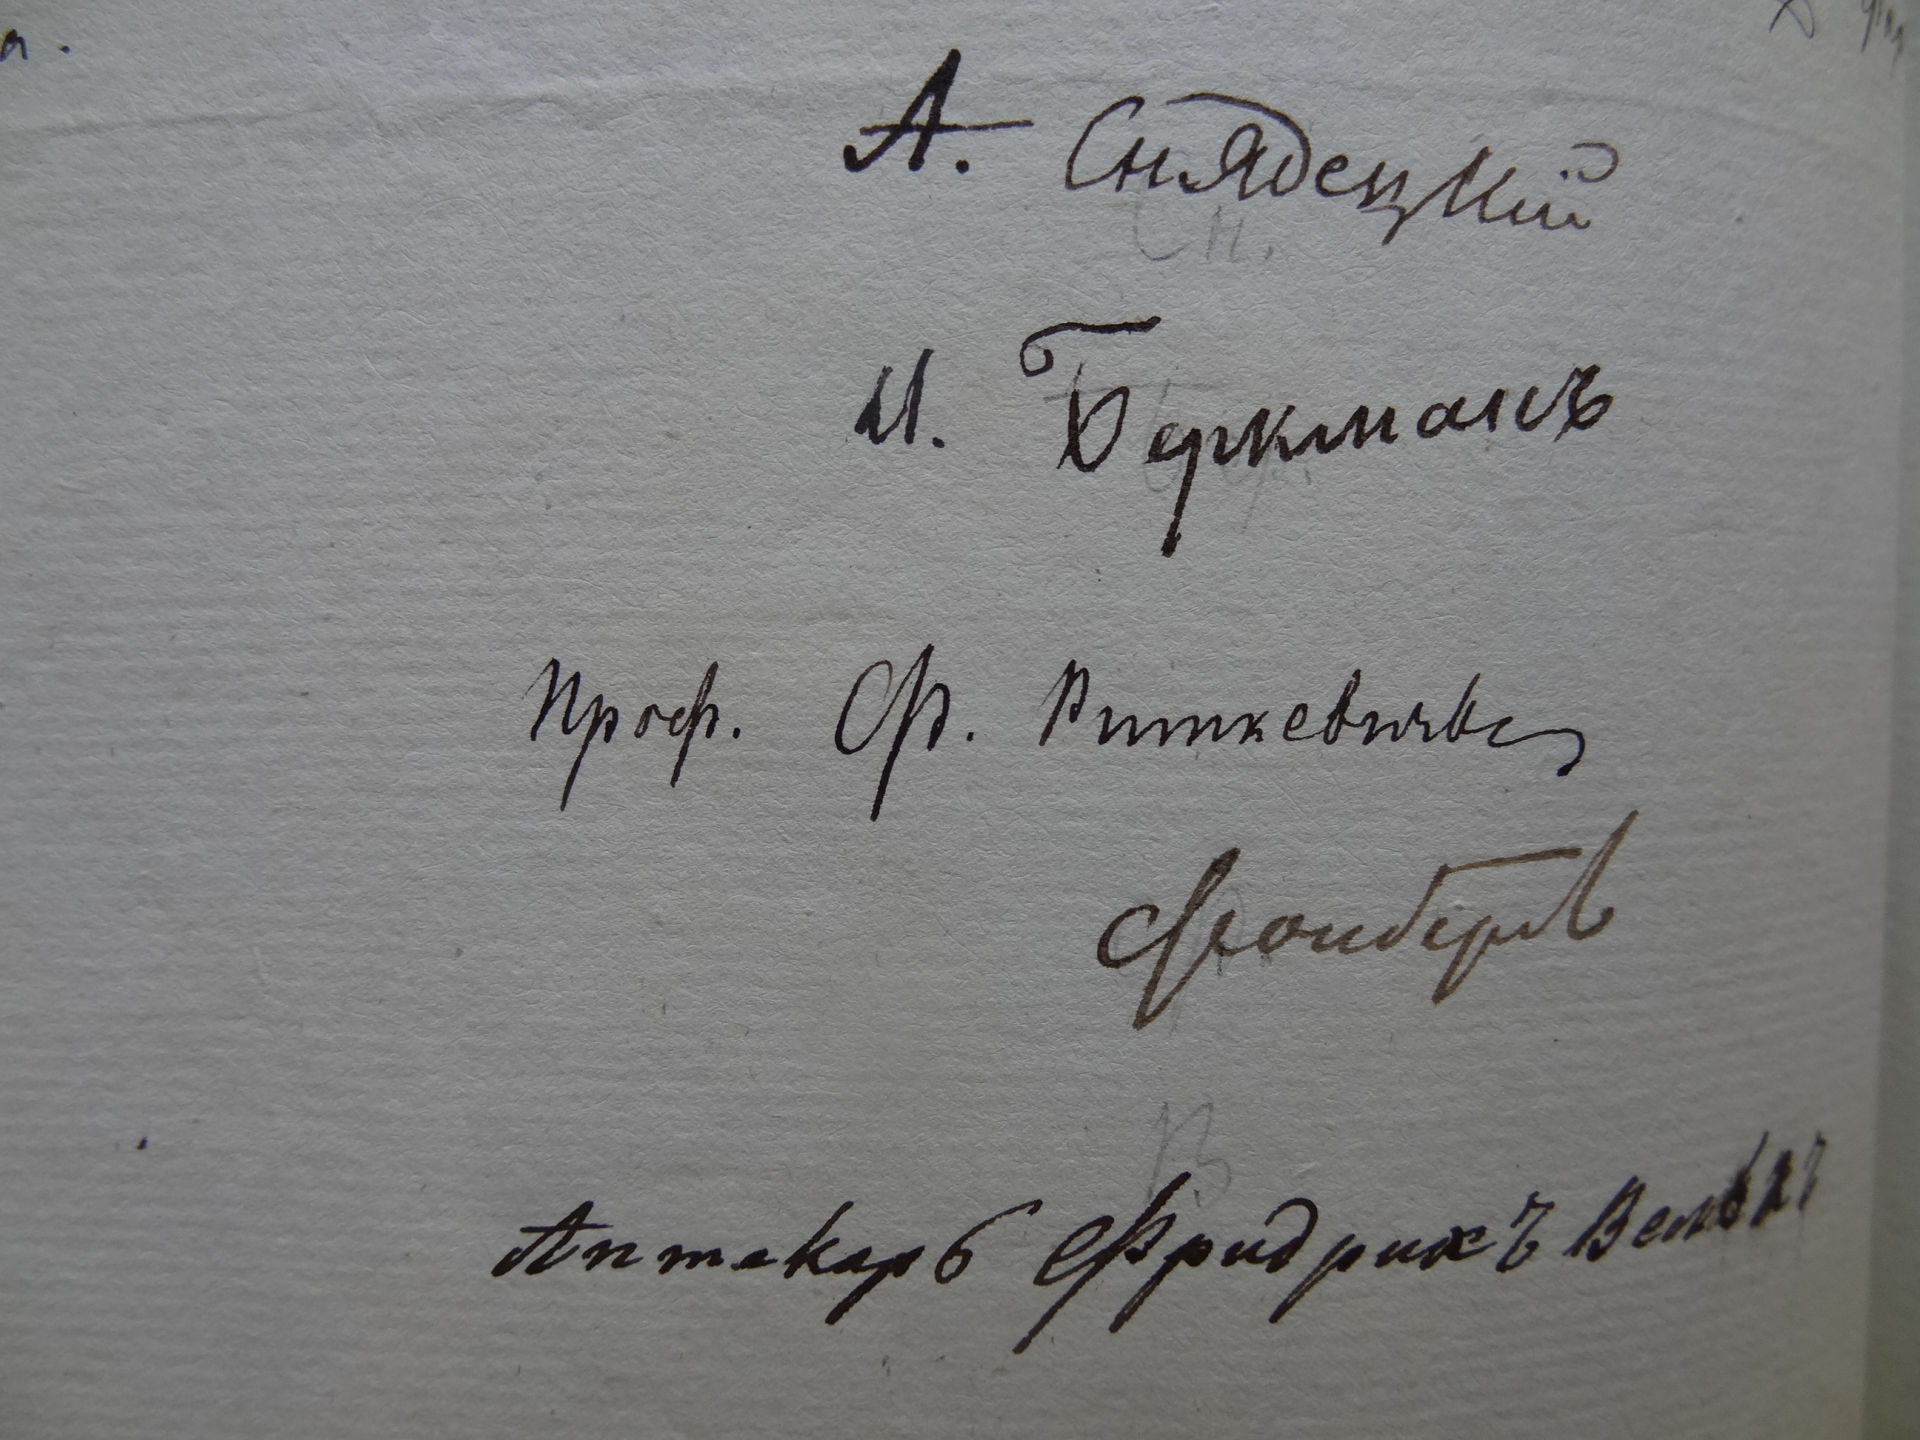 А. Снядецкій
Сн.
И. Беркманъ
Проф. Ф. Риткевичъ
Фонбергъ
В
Аптекарь Фридрихъ